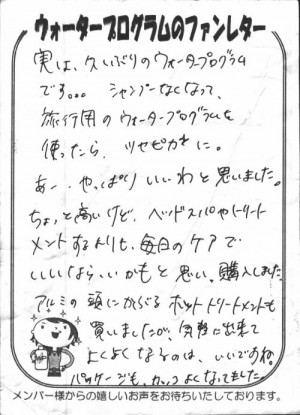 ウォータープログラムのファンレター
実は、久しぶりのウォータープログラム
です。。。 シャンプーなくなって、
旅行用のウォータープログラムを
使ったら、ツヤピカに。
あー、やっぱりいいわと思いました。
ちょっと高いけど、ヘッドスパやトリート
メントするよりも、毎日のケアで
いいなら、いいかもと思い、購入しました。
アルミの頭にかぶるホットトリートメントも
買いましたが、気軽に出来て
よくなるのは、いいですね。
パッケージも、カッコよくなってました。
メンバー様からの嬉しいお声をお待ちいたしております。